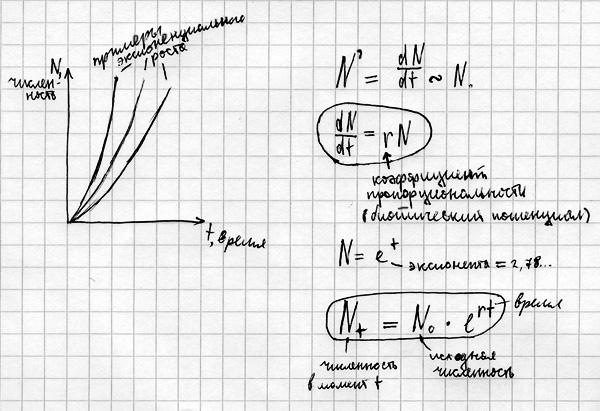 N,
числен-
ность
примеры
экспоненциального
роста
t, время
N' = dN/dt ~ N.
dN/dt = rN
коэффициент
пропорциональности
(биотический потенциал)
N = e^t
экспонента = 2,78...
N_t = N_0 · e^rt
время
численность
в момент t
исходная
численность